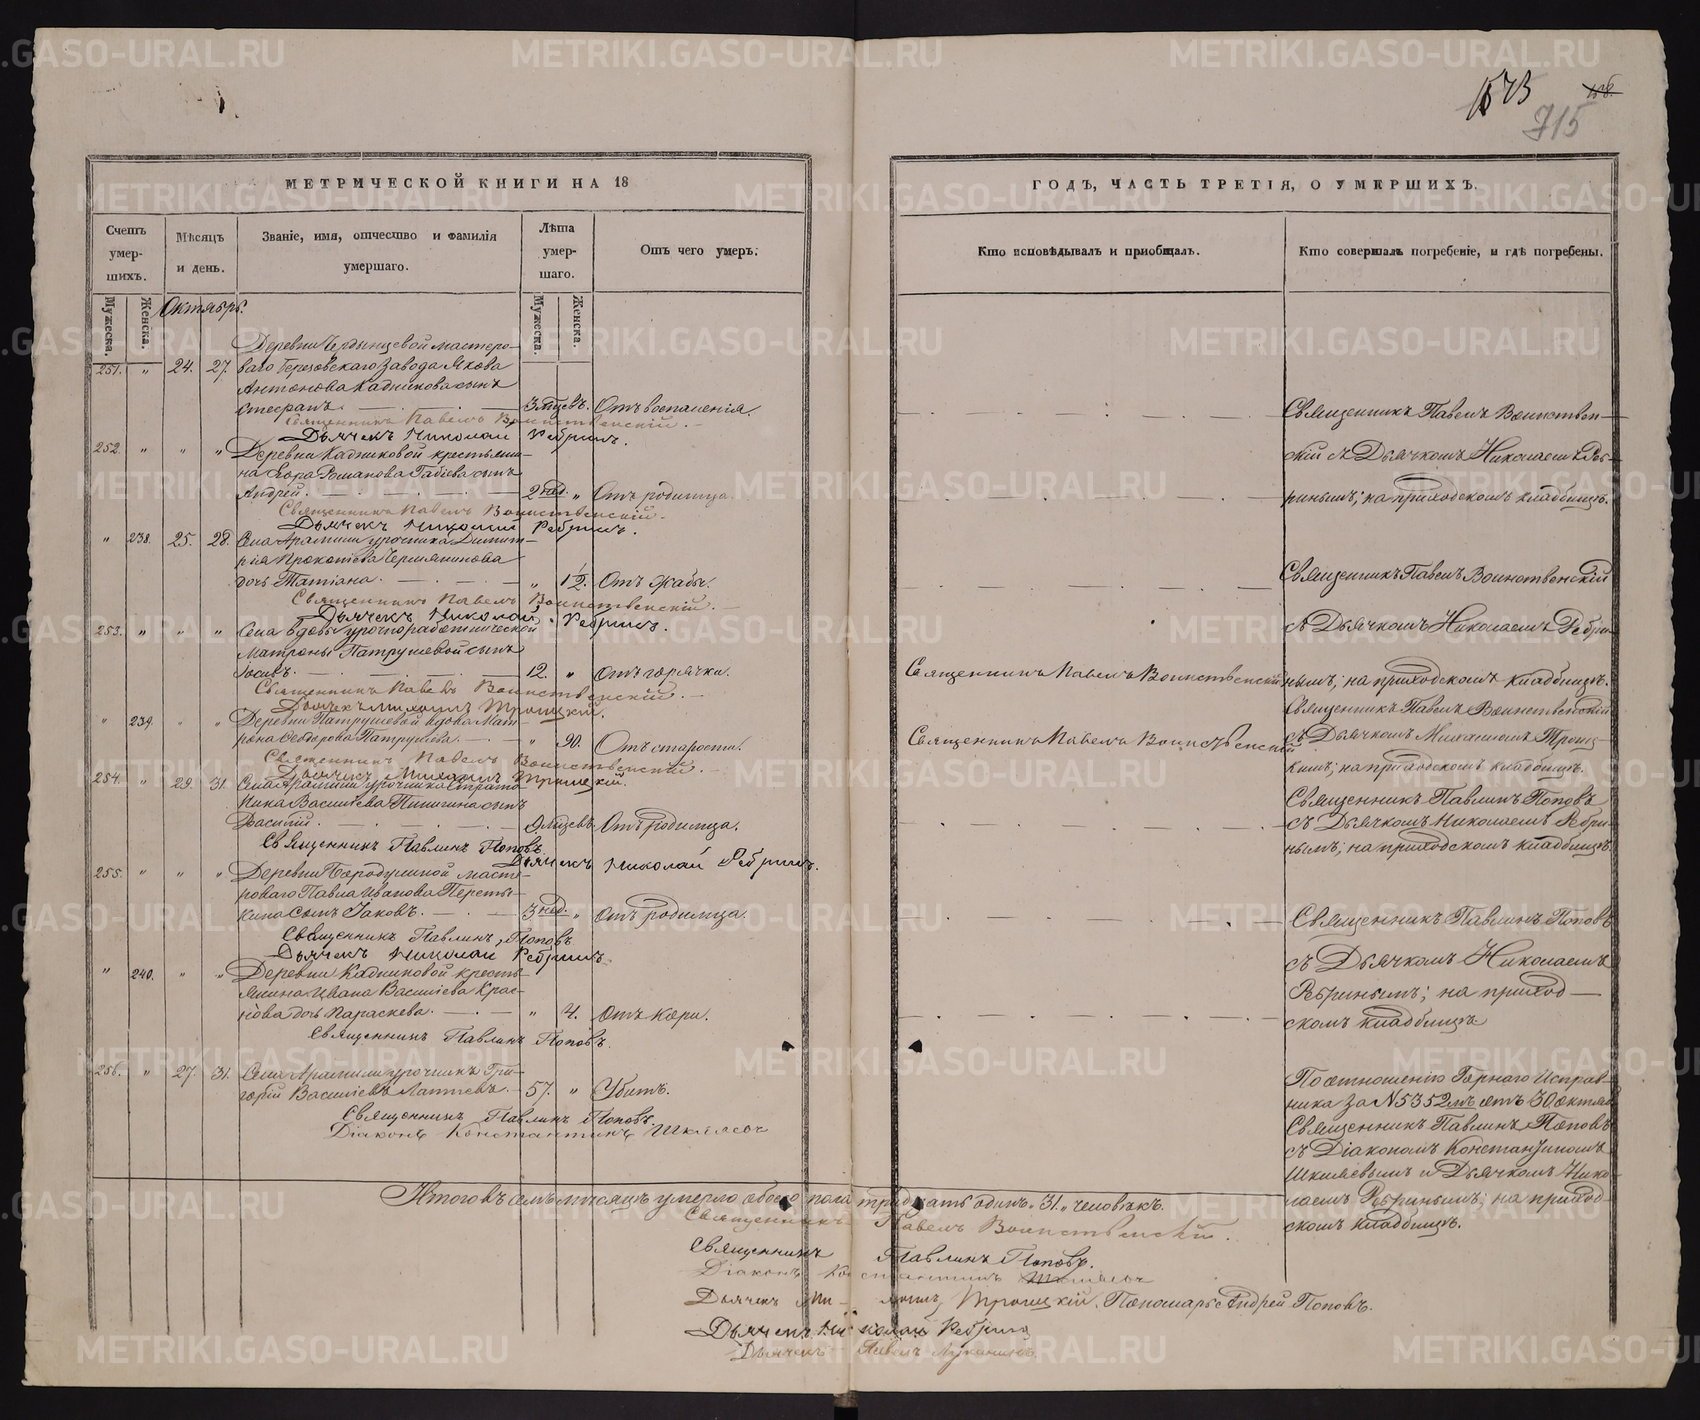 1573
715
МЕТРИЧЕСКОЙ КНИГИ НА 18
ГОДЪ, ЧАСТЬ ТРЕТІЯ, О УМЕРШИХЪ.
Счетъ умер-шихъ.
Мужеска.
Женска.
Мѣсяцъ и день.
Званіе, имя, отчество и фамилія умершаго.
Лѣта умер-шаго.
Мужеска.
Женска.
Отъ чего умеръ.
Кто исповѣдывалъ и пріобщалъ.
Кто совершалъ погребеніе, и гдѣ погребены.
Октябрь.
Деревни мастеро-
251. " 24. 27. ваго Березовскаго Завода Якова
Антонова Кадникова сынъ
Стефанъ. 3 мцевъ. Отъ воспаленія.
Священникъ Павелъ Воинственскій.
Дьячекъ Николай Ребринъ.
Священникъ Павелъ Воинствен-
скій съ Дьячкомъ Николаемъ Реб-
ринымъ; на приходскомъ кладбищѣ.
252. " " " Деревни Кадниковой крестьяни-
на Егора Романова сынъ
Андрей. 2 нед. " Отъ родимца.
Священникъ Павелъ Воинственскій.
Дьячекъ Николай Ребринъ.
" 238. 25. 28. Села Арамили урочника Димит-
рія Прокопіева
дочь Татіана. " 1½. Отъ жабы.
Священникъ Павелъ Воинственскій.
Дьячекъ Николай Ребринъ.
Священникъ Павелъ Воинственскій
съ Дьячкомъ Николаемъ Ребри-
нымъ; на приходскомъ кладбищѣ.
253. " " " Села вдовы урочноработнической
Матроны Патрушевой сынъ
Іосифъ. 12. " Отъ горячки.
Священникъ Павелъ Воинственскій
Священникъ Павелъ Воинственскій.
Дьячекъ Михаилъ Троицкій.
" 239. " " Деревни Патрушевой вдова Мат-
рона Ѳеодорова Патрушева. " 90. Отъ старости.
Священникъ Павелъ Воинственскій
Священникъ Павелъ Воинственскій.
Дьячекъ Михаилъ Троицкій.
Священникъ Павелъ Воинственскій
съ Дьячкомъ Михаиломъ Троиц-
кимъ; на приходскомъ кладбищѣ.
254. " 29. 31. Села Арамили урочника Страто-
ника Васильева Пинигина сынъ
Василій. 9 мцевъ Отъ родимца.
Священникъ Павлинъ Поповъ
Дьячекъ Николай Ребринъ.
Священникъ Павлинъ Поповъ
съ Дьячкомъ Николаемъ Ребри-
нымъ; на приходскомъ кладбищѣ.
255. " " " Деревни Бородулиной масте-
роваго Павла Иванова
сынъ Іаковъ. 3 нед. " Отъ родимца.
Священникъ Павлинъ Поповъ
Дьячекъ Николай Ребринъ
" 240. " " Деревни Кадниковой кресть-
янина Ивана Васильева Крас-
нова дочь Параскева. " 4. Отъ кори.
Священникъ Павлинъ Поповъ.
Священникъ Павлинъ Поповъ
съ Дьячкомъ Николаемъ
Ребринымъ; на приход-
скомъ кладбищѣ.
256. " 27. 31. Села Арамили урочникъ Гри-
горій Васильевъ Лаптевъ. 57. " Убитъ.
Священникъ Павлинъ Поповъ.
Діаконъ Константинъ Шкляевъ
По отношенію Горнаго Исправ-
ника за N 5352мъ отъ 30 октяб
Священникъ Павлинъ Поповъ
съ Діакономъ Константиномъ
Шкляевымъ и Дьячкомъ Нико-
лаемъ Ребринымъ; на приход-
скомъ кладбищѣ.
Итого въ семъ мѣсяцѣ умерло обоего пола тридцать одинъ "31" человѣкъ.
Священникъ Павелъ Воинственскій.
Священникъ Павлинъ Поповъ.
Діаконъ Константинъ Шкляевъ
Дьячекъ Михаилъ Троицкій. Пономарь Андрей Поповъ.
Дьячекъ Николай Ребринъ
Дьячекъ Павелъ Луканинъ.
METRIKI.GASO-URAL.RU